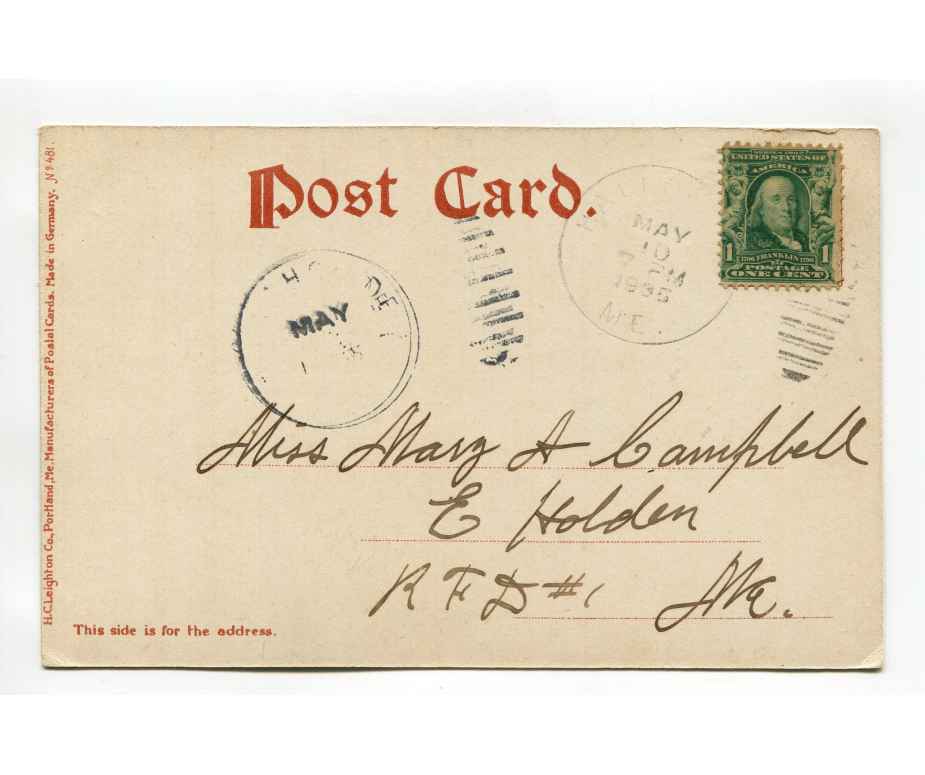 Post Card.
UNITED STATES OF
AMERICA
1 1706 FRANKLIN 1790 1
POSTAGE
ONE CENT
MAY
10
ME.
MAY
Miss Mary A Campbell
E Holden
R F D #1 Me.
This side is for the address.
H.C. Leighton Co., Portland, Me. Manufacturers of Postal Cards. Made in Germany. No 481.